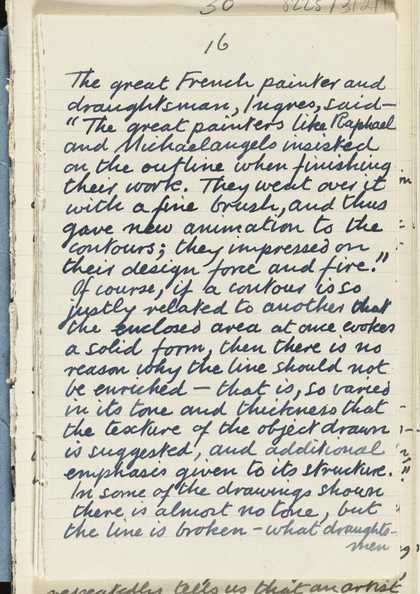 30
8225/3/2/1
16
The great French painter and
draughtsman, Ingres, said—
"The great painters like Raphael
and Michaelangelo insisted
on the outline when finishing
their work. They went over it
with a fine brush, and thus
gave new animation to the
contours; they impressed on
their design force and fire."
Of course, if a contour is so
justly related to another that
the enclosed area at once evokes
a solid form, then there is no
reason why the line should not
be enriched — that is, so varied
in its tone and thickness that
the texture of the object drawn
is suggested, and additional
emphasis given to its structure.
In some of the drawings shown
there is almost no tone, but
the line is broken — what draughts-
men
repeatedly tells us that an artist